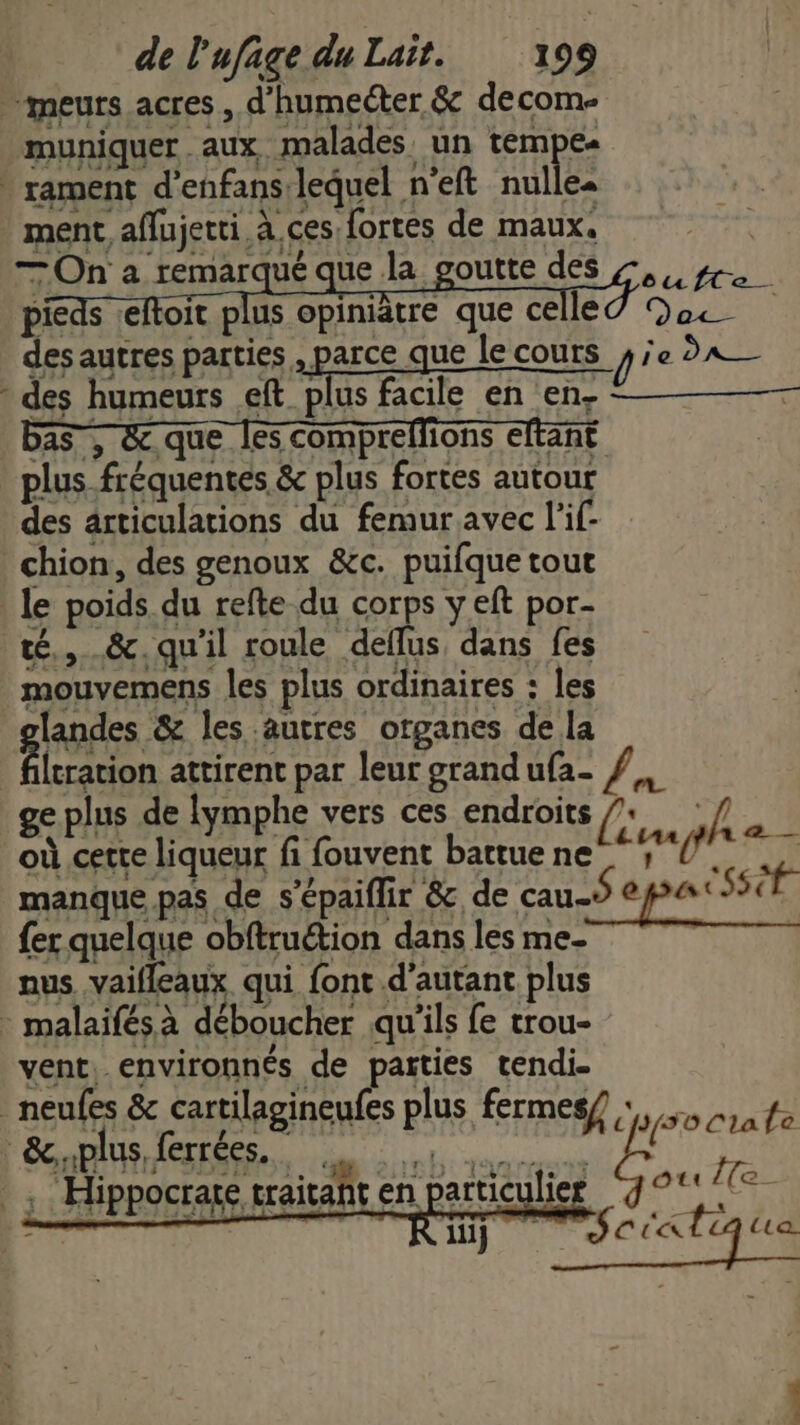 de l'uſage du Lait. 199
meurs acres, d'humecter & decom-
muniquer aux malades un tempe-
rament d'enfans lequel n'eſt nulle-
ment aſſujetti à ces ſortes de maux.
On a remarqué que la goutte des goutte
pieds eſtoit plus opiniâtre que celle Dac
des autres parties, parce que le cours pieDs
des humeurs eſt plus facile en en-
bas, & que les compreſſions eſtant
plus fréquentes & plus fortes autour
des articulations du femur avec l'iſ-
chion, des genoux &c. puiſque tout
le poids du reſte du corps y eſt por-
té, & qu'il roule deſſus dans ſes
mouvemens les plus ordinaires : les
glandes & les autres organes de la
filtration attirent par leur grand uſa- la
ge plus de lymphe vers ces endroits
où cette liqueur ſi ſouvent battue ne Limphe
manque pas de s'épaiſſir & de cau- S epaissit
ſer quelque obſtruction dans les me-
nus vaiſſeaux qui ſont d'autant plus
malaiſés à déboucher qu'ils ſe trou-
vent environnés de parties tendi-
neuſes & cartilagineuſes plus fermes ipsocrate
& plus ſerrées.
Hippocrate traitant en particulier goutte
R iiij Sciatique